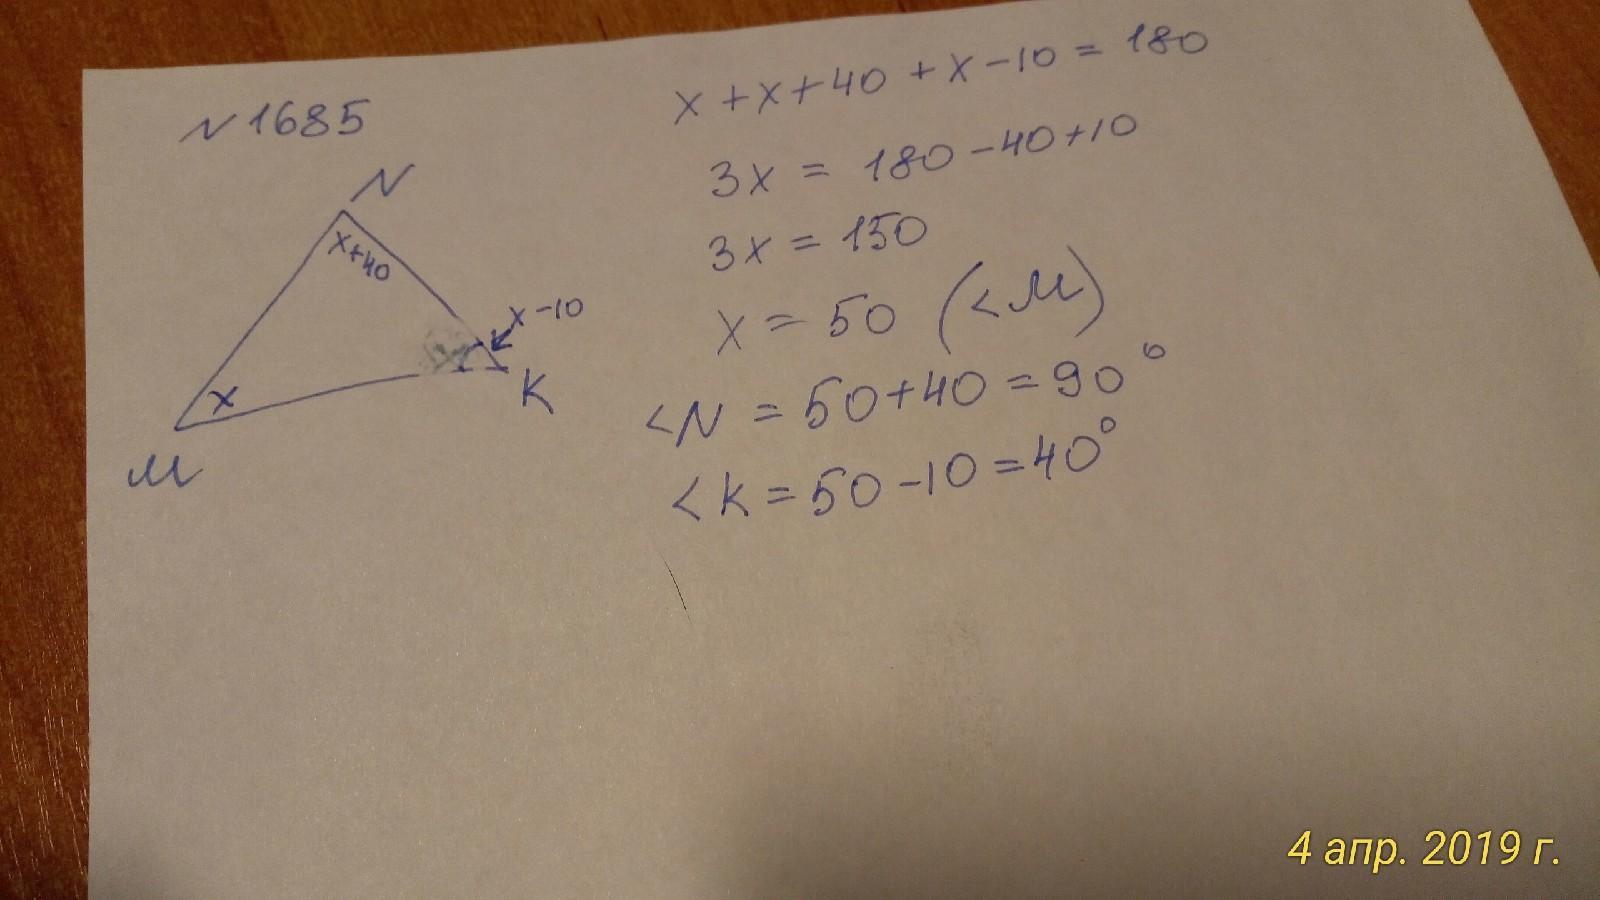 N 1685
N
x+40
x-10
x
K
M
x + x + 40 + x - 10 = 180
3x = 180 - 40 + 10
3x = 150
x = 50 (<M)
<N = 50 + 40 = 90°
<K = 50 - 10 = 40°
4 апр. 2019 г.